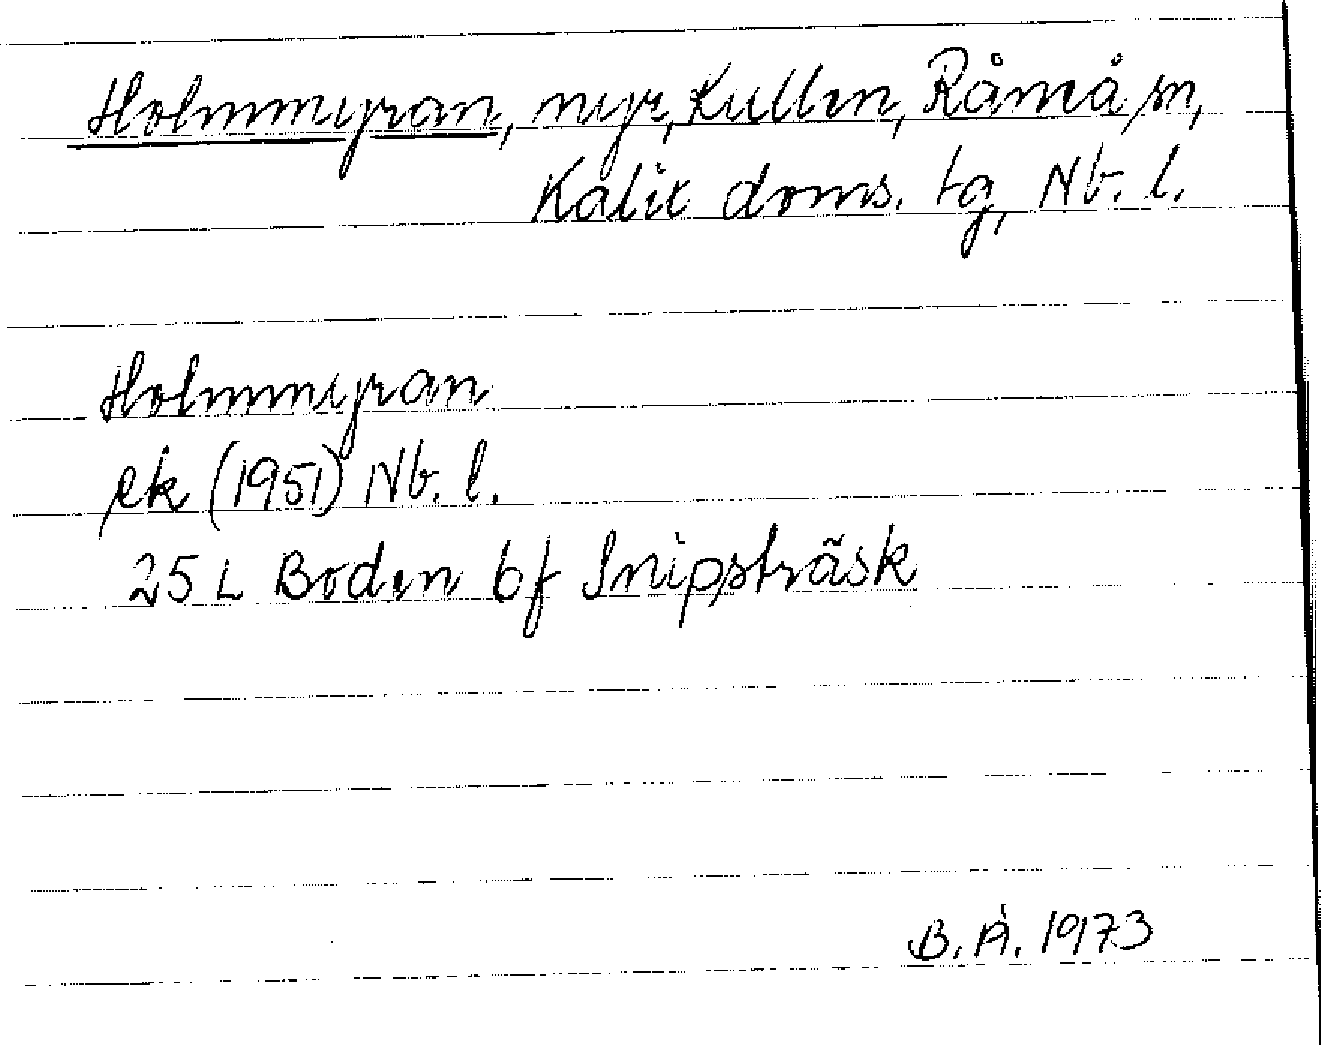 Holmmyran, myr, Kullen, Råneå sn,
Kalix doms. tg, Nb. l.
Holmmyran
ek (1951) Nb. l.
25 L Boden bf Snippsträsk
B. Å. 1973